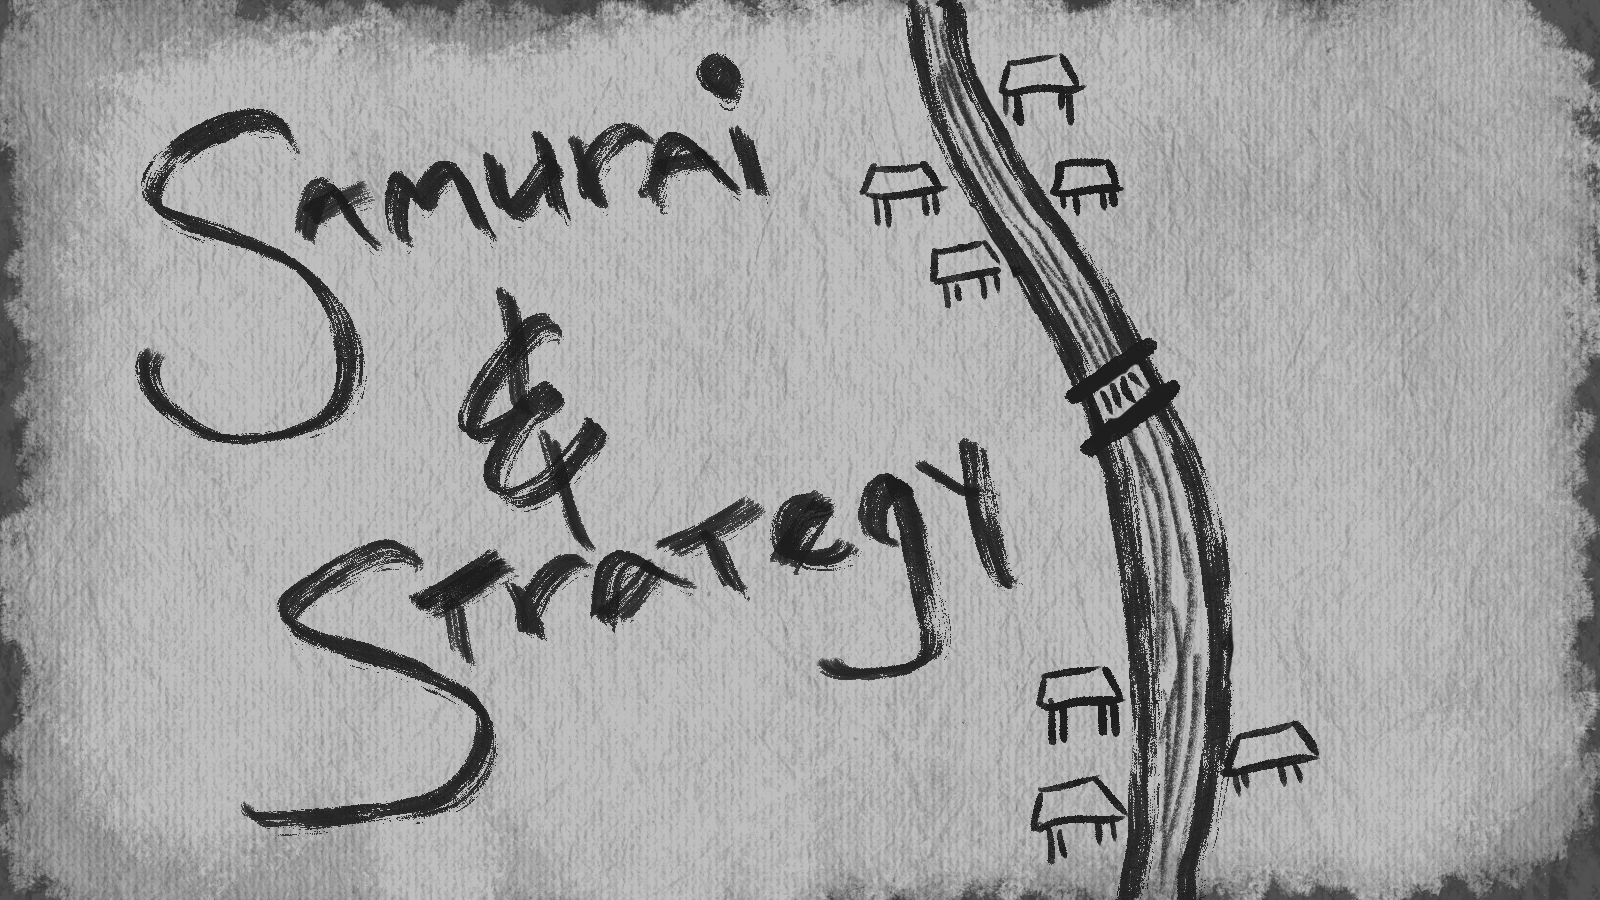 Samurai
&
Strategy